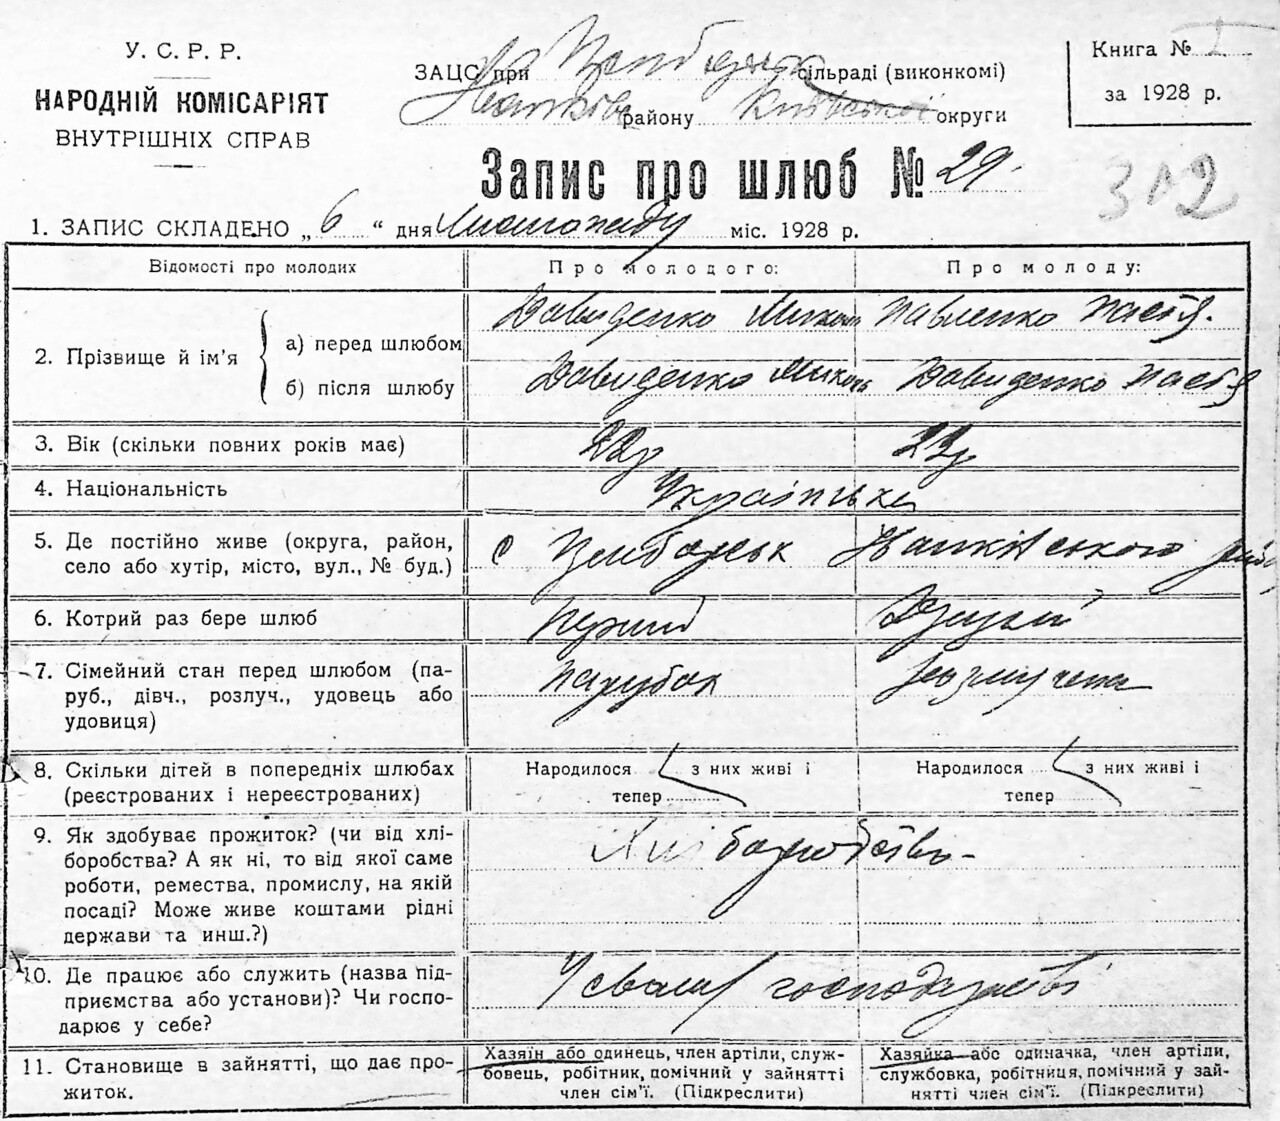 У. С. Р. Р.
НАРОДНІЙ КОМІСАРІЯТ
ВНУТРІШНІХ СПРАВ
ЗАЦС при сільраді (виконкомі)
району Київської округи
Книга № 1
за 1928 р.
Запис про шлюб № 29.
312
1. ЗАПИС СКЛАДЕНО „ 6 “ дня Листопаду міс. 1928 р.
Відомості про молодих
Про молодого:
Про молоду:
2. Прізвище й ім’я
а) перед шлюбом
Давиденко Микол
Павленко Настя.
б) після шлюбу
Давиденко Микол
Давиденко Настя
3. Вік (скільки повних років має)
22р
22р
4. Національність
Українська
5. Де постійно живе (округа, район,
село або хутір, місто, вул., № буд.)
с
6. Котрий раз бере шлюб
Перший
Другий
7. Сімейний стан перед шлюбом (па-
руб., дівч., розлуч., удовець або
удовиця)
парубок
розлучена
8. Скільки дітей в попередніх шлюбах
(реєстрованих і нереєстрованих)
Народилося з них живі і
тепер
Народилося з них живі і
тепер
9. Як здобуває прожиток? (чи від хлі-
боробства? А як ні, то від якої саме
роботи, ремества, промислу, на якій
посаді? Може живе коштами рідні
держави та инш.?)
Хліборобство-
10. Де працює або служить (назва під-
приємства або установи)? Чи госпо-
дарює у себе?
У своему господарстві
11. Становище в зайнятті, що дає про-
житок.
Хазяїн або одинець, член артіли, служ-
бовець, робітник, помічний у зайнятті
член сім’ї. (Підкреслити)
Хазяйка або одиначка, член артіли,
службовка, робітниця, помічний у зай-
нятті член сім’ї. (Підкреслити)